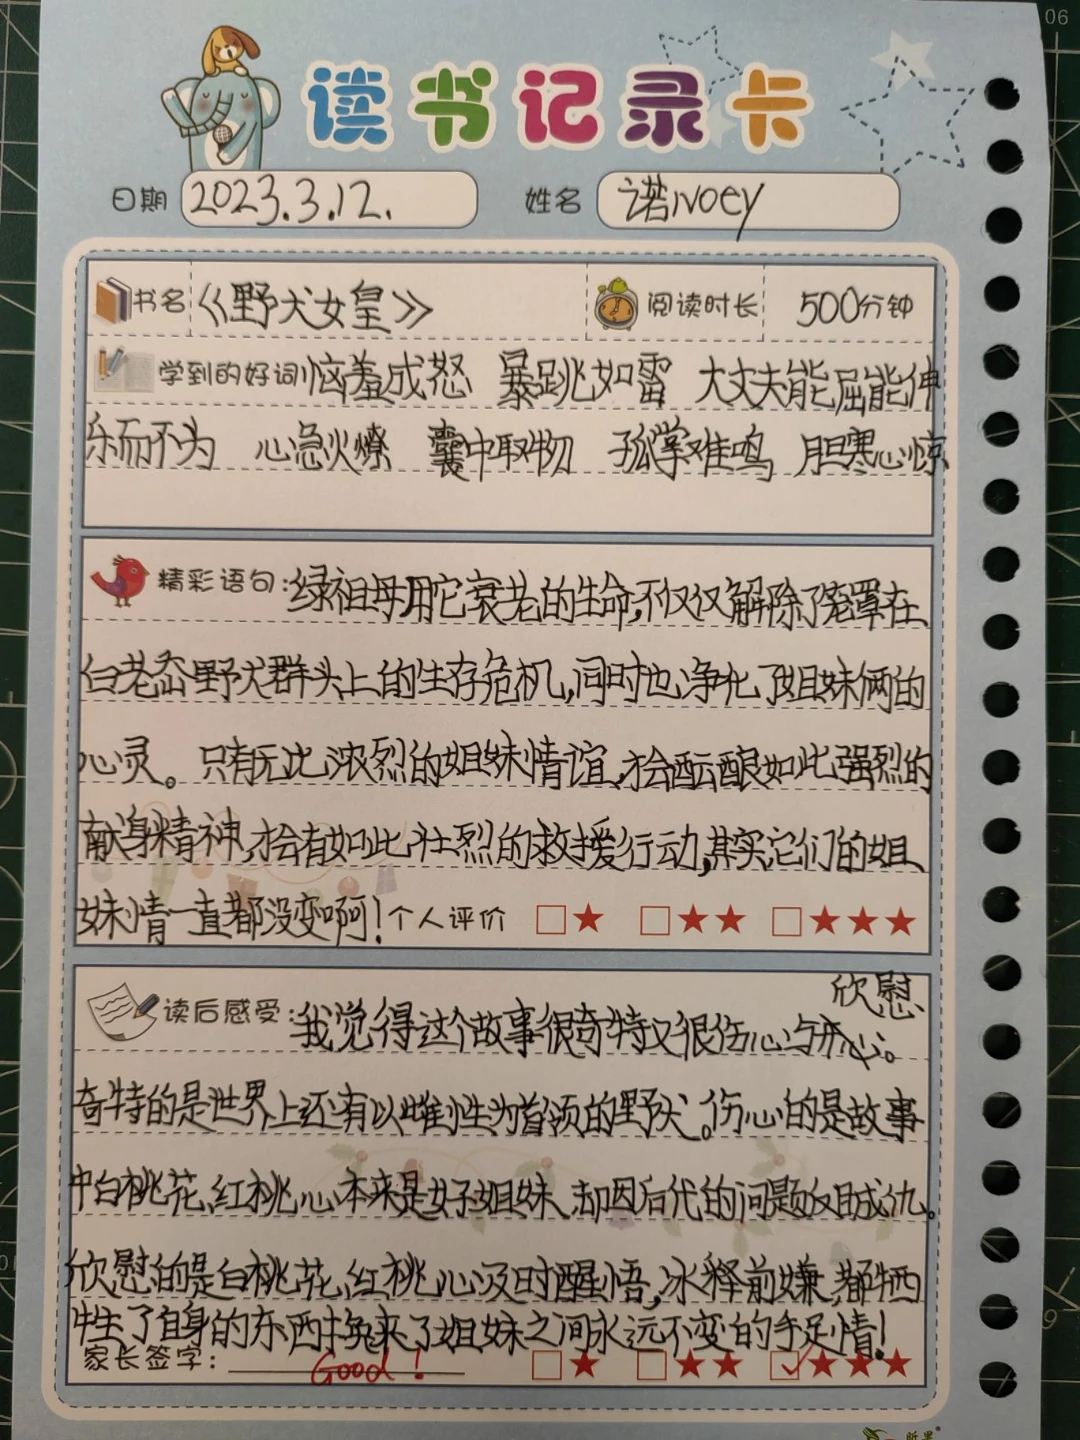 06
读书记录卡
日期 2023.3.12. 姓名 诺ivoey
书名 《野犬女皇》 阅读时长 500分钟
学到的好词 恼羞成怒 暴跳如雷 大丈夫能屈能伸
乐而不为 心急火燎 囊中取物 孤掌难鸣 胆寒心惊
精彩语句:绿祖母用它衰老的生命,不仅仅解除了笼罩在
白老岙野犬群头上的生存危机,同时也净化了姐妹俩的
心灵。只有无比浓烈的姐妹情谊,才会酝酿如此强烈的
献身精神,才会有如此壮烈的救援行动,其实,它们的姐
妹情一直都没变啊! 个人评价 ★ ★★ ★★★
欣慰
读后感受:我觉得这个故事很奇特又很伤心与开心。
奇特的是世界上还有以雌性为首领的野犬。伤心的是故事
中白桃花、红桃心本来是好姐妹,却因后代的问题反目成仇。
欣慰的是白桃花、红桃心及时醒悟,冰释前嫌,都牺
牲了自身的东西换来了姐妹之间永远不变的手足情!
家长签字: Good! ★ ★★ ✓★★★